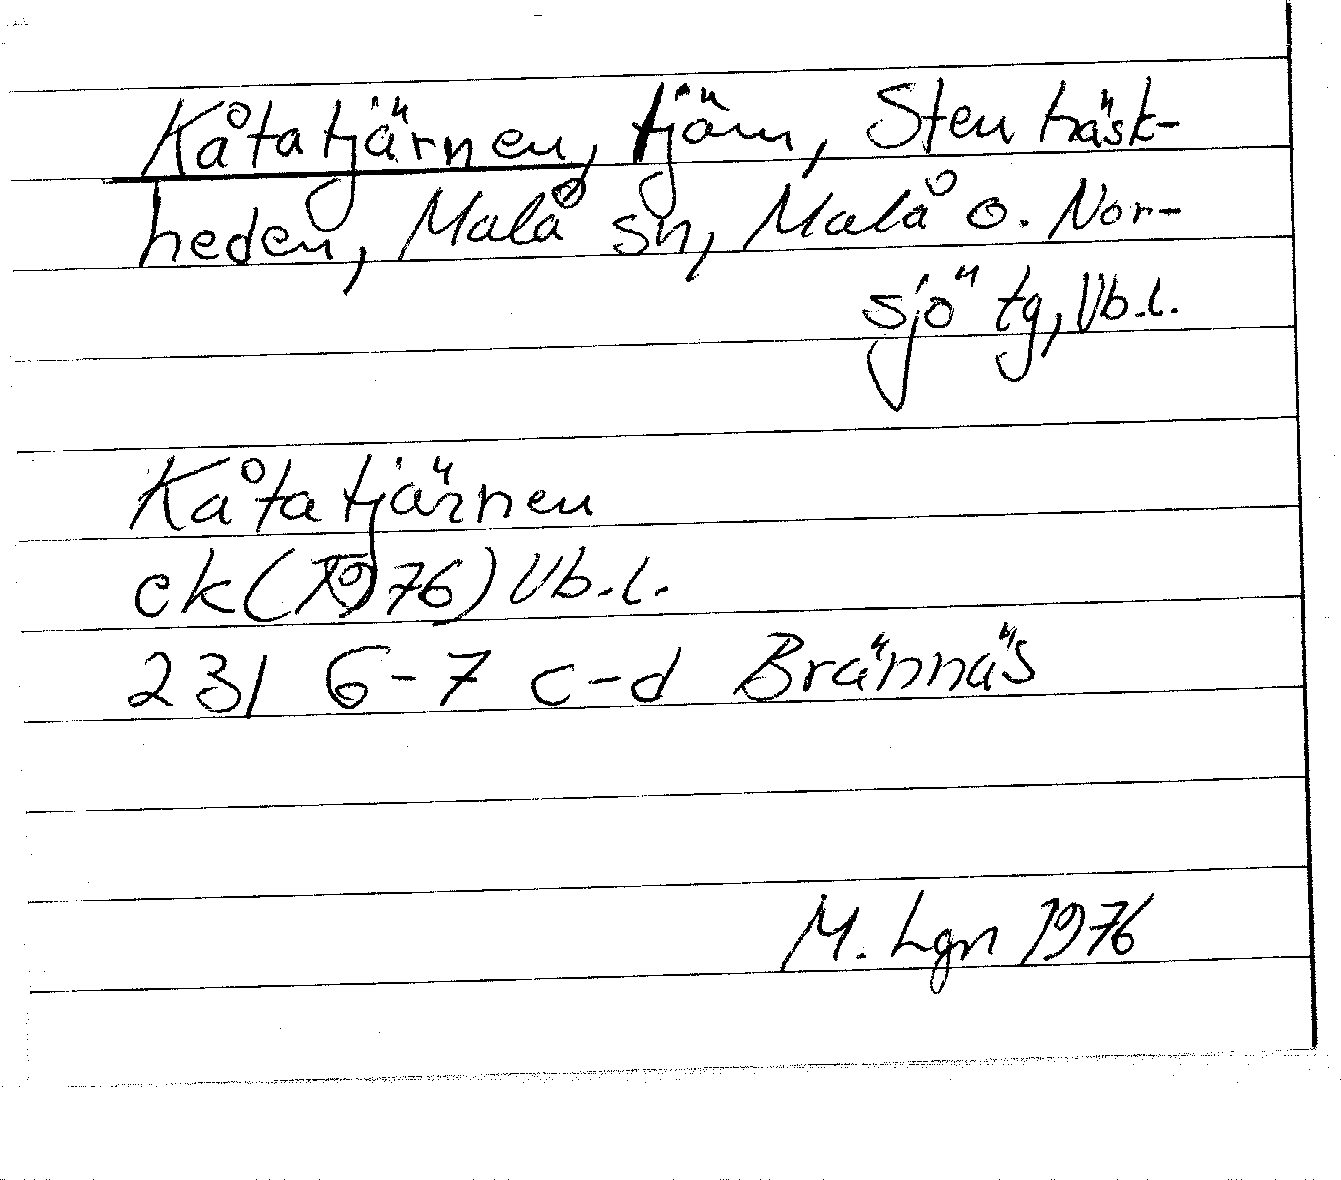 Kåtatjärnen, tjärn, Stenträsk-
heden, Malå sn, Malå o. Nor-
sjö tg, Vb.l.
Kåtatjärnen
ek (1976) Vb.l.
23I 6-7 c-d Brännäs
M. Lgn 1976